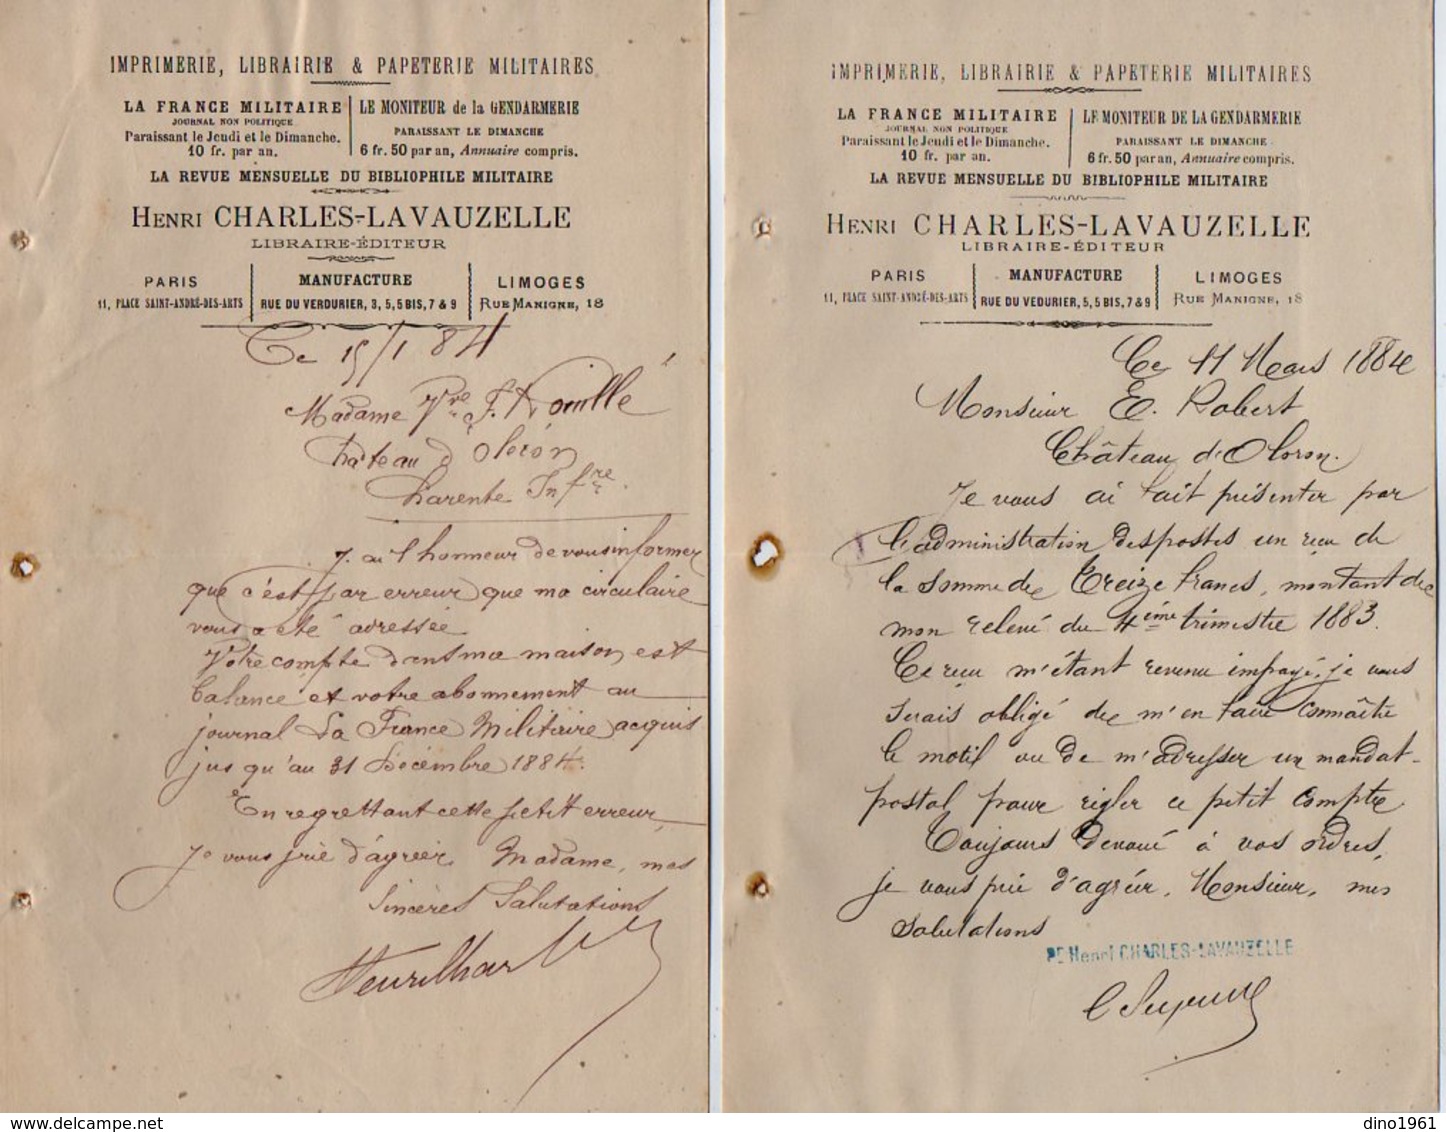 IMPRIMERIE, LIBRAIRIE & PAPETERIE MILITAIRES
LA FRANCE MILITAIRE
JOURNAL NON POLITIQUE
Paraissant le Jeudi et le Dimanche.
10 fr. par an.
LE MONITEUR de la GENDARMERIE
PARAISSANT LE DIMANCHE
6 fr. 50 par an, Annuaire compris.
LA REVUE MENSUELLE DU BIBLIOPHILE MILITAIRE
HENRI CHARLES-LAVAUZELLE
LIBRAIRE-ÉDITEUR
PARIS
11, PLACE SAINT-ANDRÉ-DES-ARTS
MANUFACTURE
RUE DU VERDURIER, 3, 5, 5 BIS, 7 & 9
LIMOGES
RUE MANIGNE, 18
Ce 15/1 84
Madame Vve J. Nouillé
Château d'Oléron
Charente Infre.
J'ai l'honneur de vous informer
que c'est par erreur que ma circulaire
vous a été adressée
Votre compte dans ma maison est
balancé et votre abonnement au
journal La France Militaire acquis
jusqu'au 31 Décembre 1884.
En regrettant cette petite erreur,
Je vous prie d'agréer, Madame, mes
Sincères Salutations
IMPRIMERIE, LIBRAIRIE & PAPETERIE MILITAIRES
LA FRANCE MILITAIRE
JOURNAL NON POLITIQUE
Paraissant le Jeudi et le Dimanche.
10 fr. par an.
LE MONITEUR DE LA GENDARMERIE
PARAISSANT LE DIMANCHE
6 fr. 50 par an, Annuaire compris.
LA REVUE MENSUELLE DU BIBLIOPHILE MILITAIRE
HENRI CHARLES-LAVAUZELLE
LIBRAIRE-ÉDITEUR
PARIS
11, PLACE SAINT-ANDRÉ-DES-ARTS
MANUFACTURE
RUE DU VEDURIER, 5, 5 BIS, 7 & 9
LIMOGES
RUE MANIGNE, 18
Ce 11 Mars 1884
Monsieur E. Robert
Château d'Oloron.
Je vous ai fait présenter par
l'administration des postes un reçu de
la somme de Treize francs, montant de
mon relevé du 4ème trimestre 1883.
Ce reçu m'étant revenu impayé, je vous
serais obligé de m'en faire connaître
le motif ou de m'adresser un mandat-
postal pour régler ce petit compte.
Toujours dévoué à vos ordres,
je vous prie d'agréer, Monsieur, mes
salutations
Pr Henri CHARLES-LAVAUZELLE
dino1961